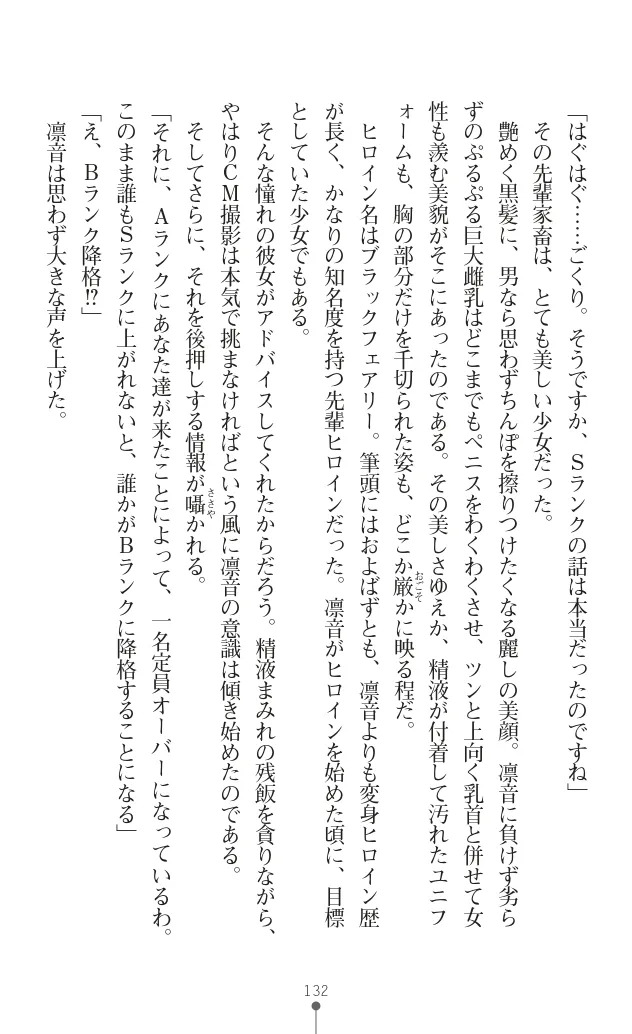 「はぐはぐ……ごくり。そうですか、Ｓランクの話は本当だったのですね」
その先輩家畜は、とても美しい少女だった。
艶めく黒髪に、男なら思わずちんぽを擦りつけたくなる麗しの美顔。凛音に負けず劣ら
ずのぷるぷる巨大雌乳はどこまでもペニスをわくわくさせ、ツンと上向く乳首と併せて女
性も羨む美貌がそこにあったのである。その美しさゆえか、精液が付着して汚れたユニフ
ォームも、胸の部分だけを千切られた姿も、どこか厳おごそかに映る程だ。
ヒロイン名はブラックフェアリー。筆頭にはおよばずとも、凛音よりも変身ヒロイン歴
が長く、かなりの知名度を持つ先輩ヒロインだった。凛音がヒロインを始めた頃に、目標
としていた少女でもある。
そんな憧れの彼女がアドバイスしてくれたからだろう。精液まみれの残飯を貪りながら、
やはりＣＭ撮影は本気で挑まなければという風に凛音の意識は傾き始めたのである。
そしてさらに、それを後押しする情報が囁ささやかれる。
「それに、Ａランクにあなた達が来たことによって、一名定員オーバーになっているわ。
このまま誰もＳランクに上がれないと、誰かがＢランクに降格することになる」
「え、Ｂランク降格!?」
凛音は思わず大きな声を上げた。
132